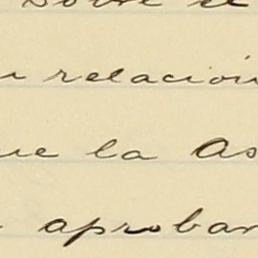 Sobre el
relación
que la As
aprobar